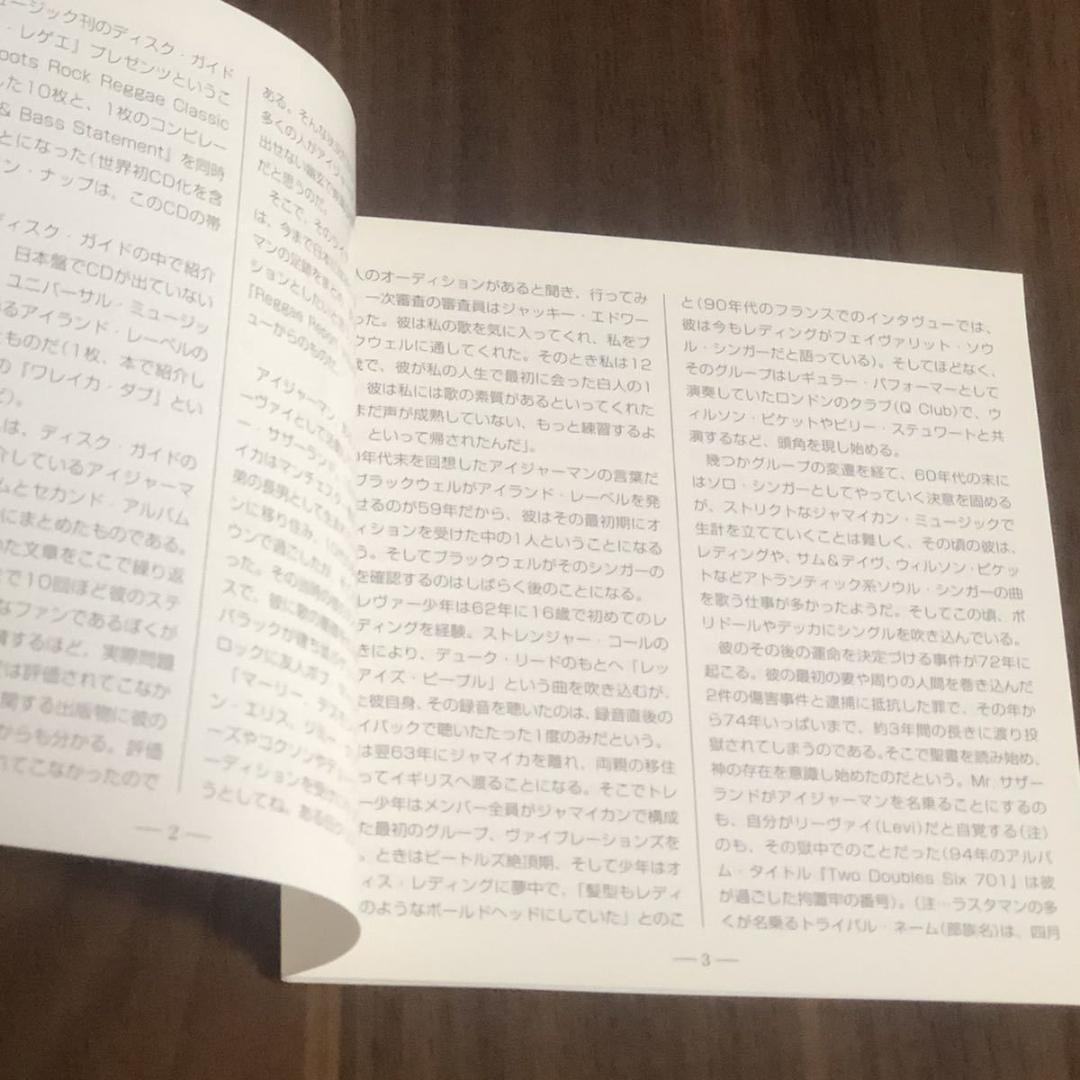 ュージック刊のディスク・ガイド
・レゲエ』プレゼンツというこ
oots Rock Reggae Classic
した10枚と、1枚のコンピレー
& Bass Statement』を同時
とになった(世界初CD化を含
ン・ナップは、このCDの帯
ディスク・ガイドの中で紹介
日本盤でCDが出ていない
ユニバーサル・ミュージッ
るアイランド・レーベルの
ものだ(1枚、本で紹介し
の『ワレイカ・ダブ』とい
は、ディスク・ガイドの
介しているアイジャーマ
ムとセカンド・アルバム
にまとめたものである。
いた文章をここで繰り返
で10回ほど彼のステ
なファンであるぼくが
するほど、実際問題
は評価されてこなか
関する出版物に彼の
からも分かる。評価
れてこなかったので
ある。そんな
多くの人がアイジャー
出せない
だと思うのだ。
そこで、そのライ
は、今まで日本
マンの足跡をまとめ
ションとしたいと思
『Reggae
ューからのものだ
アイジャーマン
ーヴァイとして
ー・サザーランド
イカはマンチェスタ
弟の長男として生
ンに移り住み、
ウンで過ごしたが
った。その
スで、彼に歌の
バラックが建ち並
ロックに友人
「マーリー
ン・エリス、ジミー
ーズやコクソン
ーディションを受け
うとしてね。ある日
— 2 —
人のオーディションがあると聞き、行ってみ
一次審査の審査員はジャッキー・エドワー
った。彼は私の歌を気に入ってくれ、私をブ
クウェルに通してくれた。そのとき私は12
歳で、彼が私の人生で最初に会った白人の1
彼は私には歌の素質があるといってくれた
まだ声が成熟していない、もっと練習するよ
といって帰されたんだ」。
年代末を回想したアイジャーマンの言葉だ
ブラックウェルがアイランド・レーベルを発
せるのが59年だから、彼はその最初期にオ
ィションを受けた中の1人ということになる
う。そしてブラックウェルがそのシンガーの
を確認するのはしばらく後のことになる。
レヴァー少年は62年に16歳で初めてのレ
ディングを経験。ストレンジャー・コールの
きにより、デューク・リードのもとへ「レッ
アイズ・ピープル」という曲を吹き込むが、
た彼自身、その録音を聴いたのは、録音直後の
イバックで聴いたたった1度のみだという。
は翌63年にジャマイカを離れ、両親の移住
ってイギリスへ渡ることになる。そこでトレ
ー少年はメンバー全員がジャマイカンで構成
た最初のグループ、ヴァイブレーションズを
。ときはビートルズ絶頂期、そして少年はオ
ィス・レディングに夢中で、「髪型もレディ
のようなボールドヘッドにしていた」とのこ
と(90年代のフランスでのインタヴューでは、
彼は今もレディングがフェイヴァリット・ソウ
ル・シンガーだと語っている)。そしてほどなく、
そのグループはレギュラー・パフォーマーとして
演奏していたロンドンのクラブ(Q Club)で、ウ
ィルソン・ピケットやビリー・ステュワートと共
演するなど、頭角を現し始める。
幾つかグループの変遷を経て、60年代の末に
はソロ・シンガーとしてやっていく決意を固める
が、ストリクトなジャマイカン・ミュージックで
生計を立てていくことは難しく、その頃の彼は、
レディングや、サム&デイヴ、ウィルソン・ピケッ
トなどアトランティック系ソウル・シンガーの曲
を歌う仕事が多かったようだ。そしてこの頃、ポ
リドールやデッカにシングルを吹き込んでいる。
彼のその後の運命を決定づける事件が72年に
起こる。彼の最初の妻や周りの人間を巻き込んだ
2件の傷害事件と逮捕に抵抗した罪で、その年か
ら74年いっぱいまで、約3年間の長きに渡り投
獄されてしまうのである。そこで聖書を読み始め、
神の存在を意識し始めたのだという。Mr.サザー
ランドがアイジャーマンを名乗ることにするの
も、自分がリーヴァイ(Levi)だと自覚する(注)
のも、その獄中でのことだった(94年のアルバ
ム・タイトル『Two Doubles Six 701』は彼
が過ごした拘置牢の番号)。(注…ラスタマンの多
くが名乗るトライバル・ネーム(部族名)は、四月
— 3 —